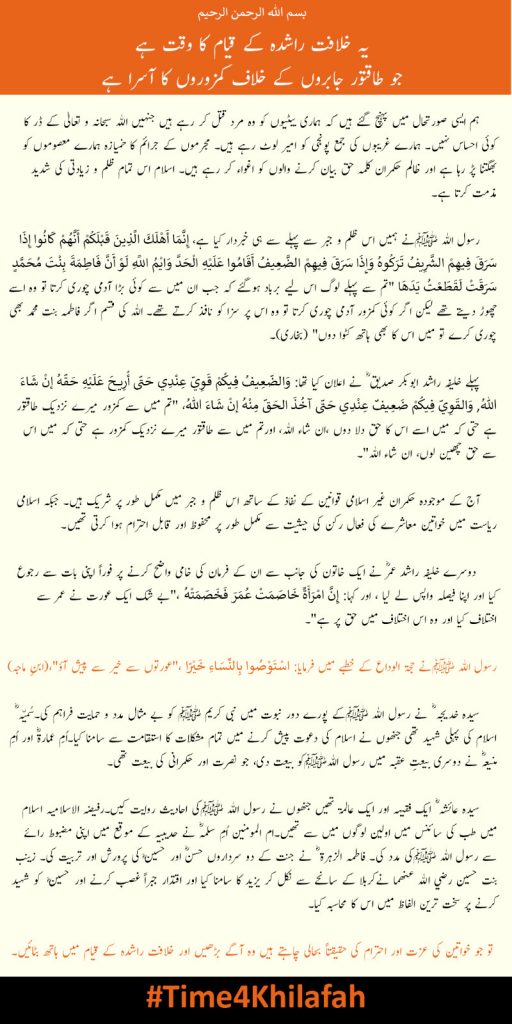 بسم الله الرحمن الرحيم
یہ خلافت راشدہ کے قیام کا وقت ہے
جو طاقتور جابروں کے خلاف کمزوروں کا آسرا ہے
ہم ایسی صورتحال میں پہنچ گئے ہیں کہ ہماری بیٹیوں کو وہ مرد قتل کر رہے ہیں جنہیں اللہ سبحانہ و تعالیٰ کے ڈر کا
کوئی احساس نہیں۔ ہمارے غریبوں کی جمع پونجی کو امیر لوٹ رہے ہیں۔ مجرموں کے جرائم کا خمیازہ ہمارے معصوموں کو
بھگتنا پڑ رہا ہے اور ظالم حکمران کلمہ حق بیان کرنے والوں کو اغواء کر رہے ہیں۔ اسلام اس تمام ظلم و زیادتی کی شدید
مذمت کرتا ہے۔
رسول اللہ ﷺنے ہمیں اس ظلم و جبر سے پہلے سے ہی خبردار کیا ہے، إِنَّمَا أَهْلَكَ الَّذِينَ قَبْلَكُمْ أَنَّهُمْ كَانُوا إِذَا
سَرَقَ فِيهِمُ الشَّرِيفُ تَرَكُوهُ وَإِذَا سَرَقَ فِيهِمُ الضَّعِيفُ أَقَامُوا عَلَيْهِ الْحَدَّ وَايْمُ اللَّهِ لَوْ أَنَّ فَاطِمَةَ بِنْتَ مُحَمَّدٍ
سَرَقَتْ لَقَطَعْتُ يَدَهَا "تم سے پہلے لوگ اس لیے برباد ہوگئے کہ جب ان میں سے کوئی بڑا آدمی چوری کرتا تو وہ اسے
چھوڑ دیتے تھے لیکن اگر کوئی کمزور آدمی چوری کرتا تو وہ اس پر سزا کو نافذ کرتے تھے۔ اللہ کی قسم اگر فاطمہ بنت محمد بھی
چوری کرے تو میں اس کا بھی ہاتھ کٹوا دوں" (بخاری)۔
پہلے خلیفہ راشد ابوبکر صدیقؓ نے اعلان کیا تھا: وَالضَعِيفُ فِيكُمْ قَوِيّ عِنْدِي حَتّى أُرِيحَ عَلَيْهِ حَقّهُ إنْ شَاءَ
اللهُ, وَالقَوِيّ فِيكُمْ ضَعِيفٌ عِنْدِي حَتّى آخُذَ الحَقّ مِنْهُ إنْ شَاءَ اللهُ، "تم میں سے کمزور میرے نزدیک طاقتور
ہے حتی کہ میں اسے اس کا حق دلا دوں ،ان شاء اللہ، اورتم میں سے طاقتور میرے نزدیک کمزور ہے حتی کہ میں اس
سے حق چھین لوں، ان شاء اللہ"۔
آج کے موجودہ حکمران غیر اسلامی قوانین کے نفاذ کے ساتھ اس ظلم و جبر میں مکمل طور پر شریک ہیں۔ جبکہ اسلامی
ریاست میں خواتین معاشرے کی فعال رکن کی حیثیت سے مکمل طور پر محفوظ اور قابل احترام ہوا کرتی تھیں۔
دوسرے خلیفہ راشد عمرؓ نے ایک خاتون کی جانب سے ان کے فرمان کی خامی واضح کرنے پر فوراً اپنی بات سے رجوع
کیا اور اپنا فیصلہ واپس لے لیا ، اور کہا: إِنَّ امْرَأَةً خَاصَمَتْ عُمَرَ فَخَصَمَتْهُ ،"بے شک ایک عورت نے عمر سے
اختلاف کیا اور وہ اس اختلاف میں حق پر ہے"۔
رسول اللہ ﷺنے حجۃ الوداع کے خطبے میں فرمایا: اسْتَوْصُوا بِالنِّسَاءِ خَيْرًا ،"عورتوں سے خیر سے پیش آؤ"،(ابنِ ماجہ)
سیدہ خدیجہؓ نے رسول اللہ ﷺکے پورے دور نبوت میں نبی کریم ﷺکو بے مثال مدد و حمایت فراہم کی۔سُمَیَّہؓ
اسلام کی پہلی شہید تھی جنھوں نے اسلام کی دعوت پیش کرنے میں تمام مشکلات کا استقامت سے سامنا کیا۔اُمِ عمارۃؓ اور اُمِ
منیعہؓ نے دوسری بیعتِ عقبہ میں رسول اللہﷺکو بیعت دی، جو نصرت اور حکمرانی کی بیعت تھی۔
سیدہ عائشہؓ ایک فقیہہ اور ایک عالمۃ تھیں جنھوں نے رسول اللہ ﷺکی احادیث روایت کیں۔رفیضہ الاسلامیہ اسلام
میں طب کی سائنس میں اولین لوگوں میں سے تھیں۔ام المومنین اُمِ سلمۃؓ نے حدیبیہ کے موقع میں اپنی مضبوط رائے
سے رسول اللہ ﷺکی مدد کی۔ فاطمہ الزہرۃؓ نے جنت کے دو سرداروں حسنؓ اور حسینؓ کی پرورش اور تربیت کی۔ زینب
بنت حسین رضي الله عنهما نےکربلا کے سانحے سے نکل کر یزید کا سامنا کیا اور اقتدار جبراً غصب کرنے اور حسینؓ کو شہید
کرنے پر سخت ترین الفاظ میں اس کا محاسبہ کیا۔
تو جو خواتین کی عزت اور احترام کی حقیقتاً بحالی چاہتے ہیں وہ آگے بڑھیں اور خلافت راشدہ کے قیام میں ہاتھ بٹائیں۔
#Time4Khilafah